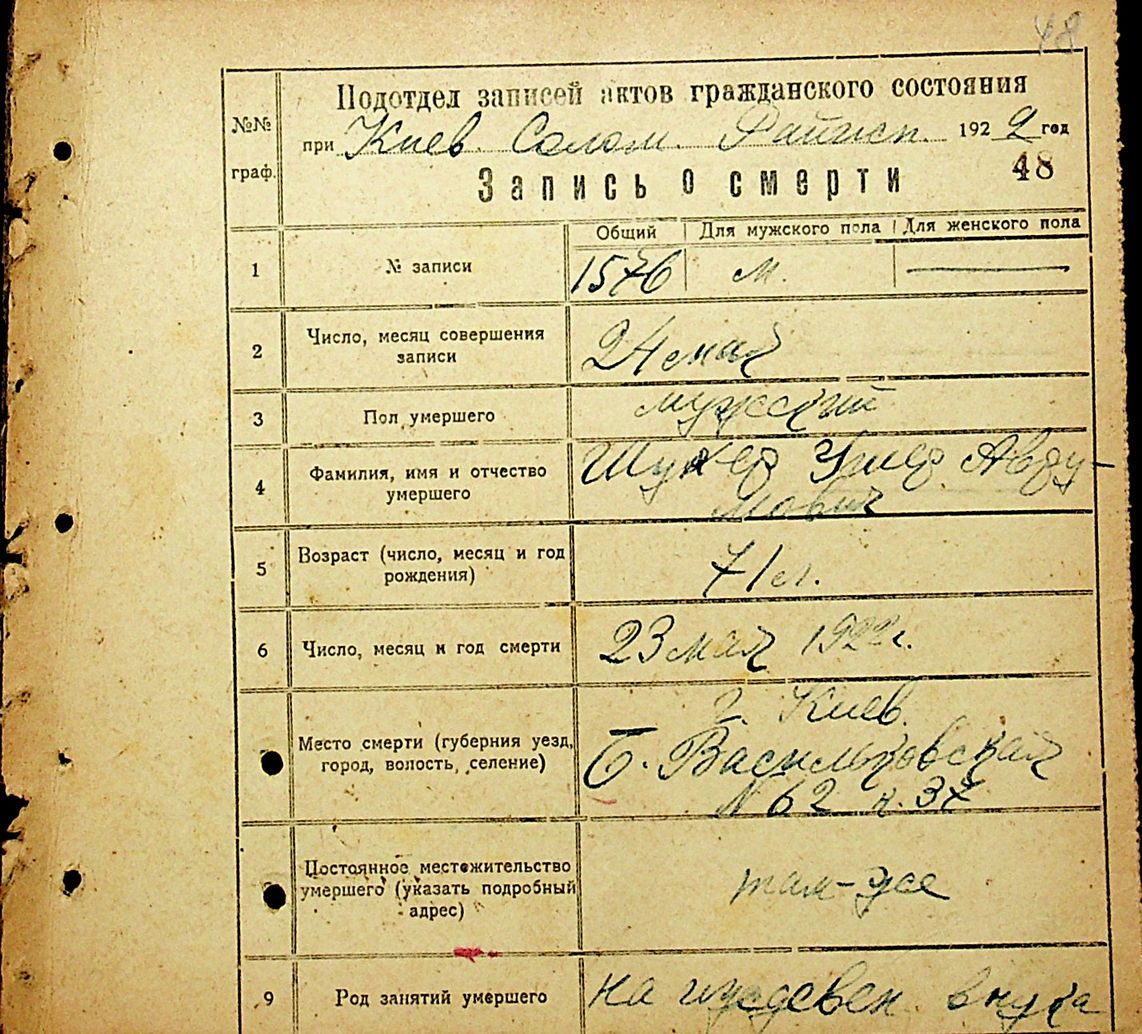 48
Подотдел записей актов гражданского состояния
№№ граф.
при Киев. Солом. Райисп. 1922 год
48
Запись о смерти
Общий Для мужского пола Для женского пола
1 № записи 1576 м. —
2 Число, месяц совершения записи 24 мая
3 Пол умершего мужский
4 Фамилия, имя и отчество умершего Шухер Умер Авру-
мович
5 Возраст (число, месяц и год рождения) 71 л.
6 Число, месяц и год смерти 23 мая 1922 г.
Место смерти (губерния уезд, город, волость, селение) г. Киев.
Б. Васильковская
№ 62 к. 37
Постоянное местожительство умершего (указать подробный адрес) там-же
9 Род занятий умершего на иждевен. внука